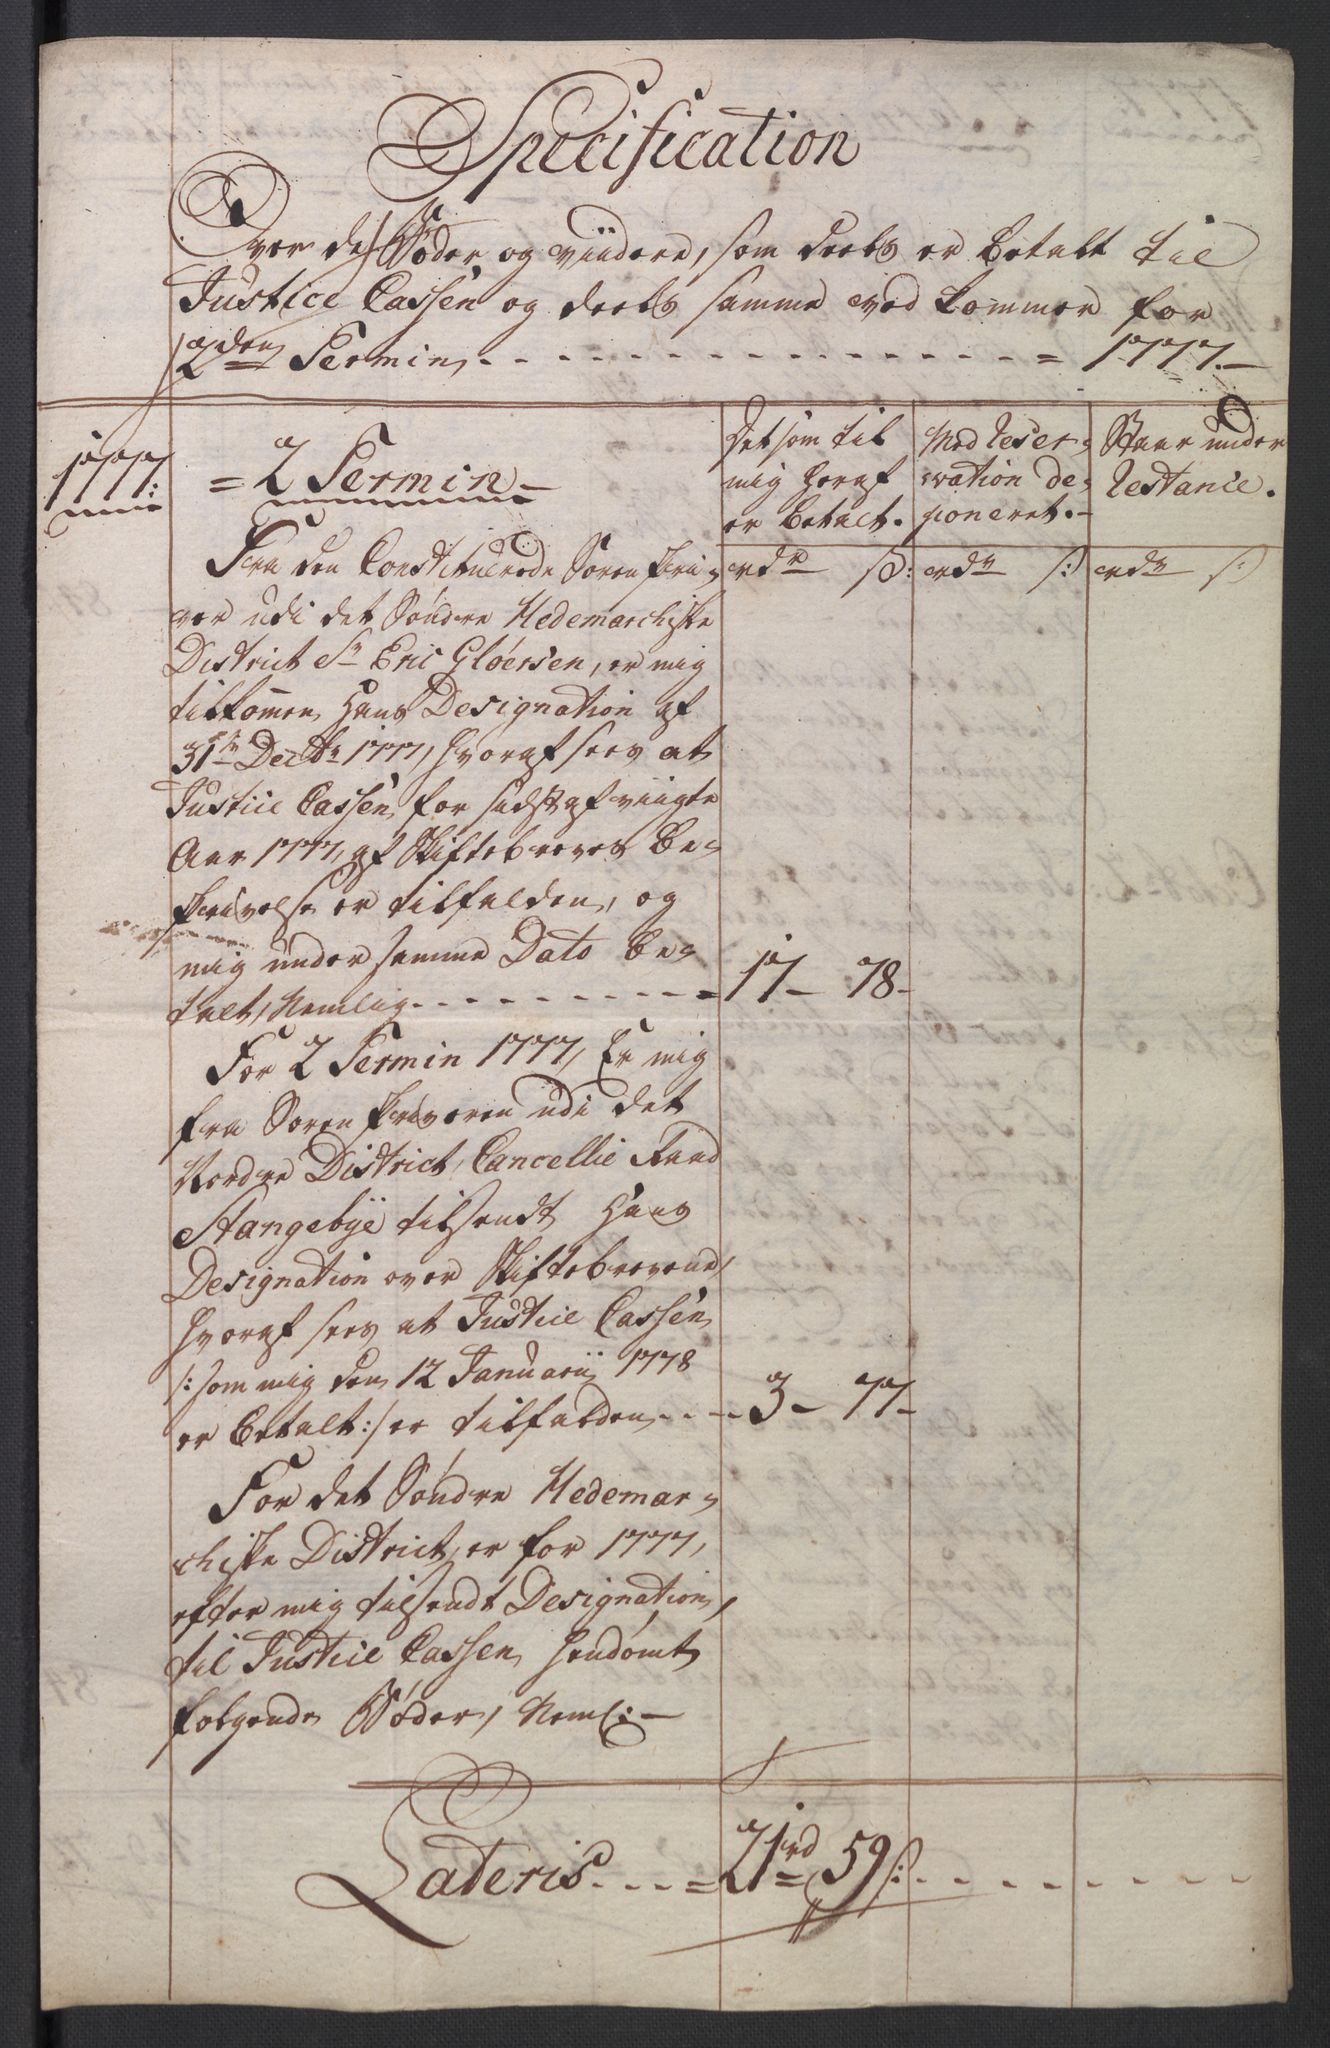 Specification
Over de Bøder og viidere, som deels er betalt til
Justice Cassen og deels samme ved kommer for
2den Termin - - - - - - = 1777.-
1777:
= 2 Termin -
Det som til
mig heraf
er betalt.
Med reser-
vation de-
poneret.-
Staar under
restance.
rdr s: rdr s: rdr s:
Fra den Constituerede Soren skri-
ver udi det Søndre Hedemarchiske
District Sr Eric Gløersen, er mig
tilkommen hans Designation af
31te Decbr 1777, hvoraf sees at
Justice Cassen for sidst afvigte
Aar 1777, af Skiftebreves be-
skrivelse er tilfalden, og
mig under samme Dato be-
talt, Nemlig - - - - - = 17 - 78 -
For 2 Termin 1777, Er mig
fra Soren skriveren udi det
Nordre District, Cancellie Raad
Stangebye tilsendt hans
Designation over Skiftebrevene,
hvoraf sees at Justice Cassen
/: som mig den 12 Januarii 1778
er betalt :/ er tilfalden - - - 3 - 77 -
For det Søndre Hedemar-
chiske District, er for 1777,
efter mig tilsendt Designation,
til Justice Cassen hendømt
følgende Bøder, Neml: -
Lateris - - - = 21rd 59 s: - - - - - -